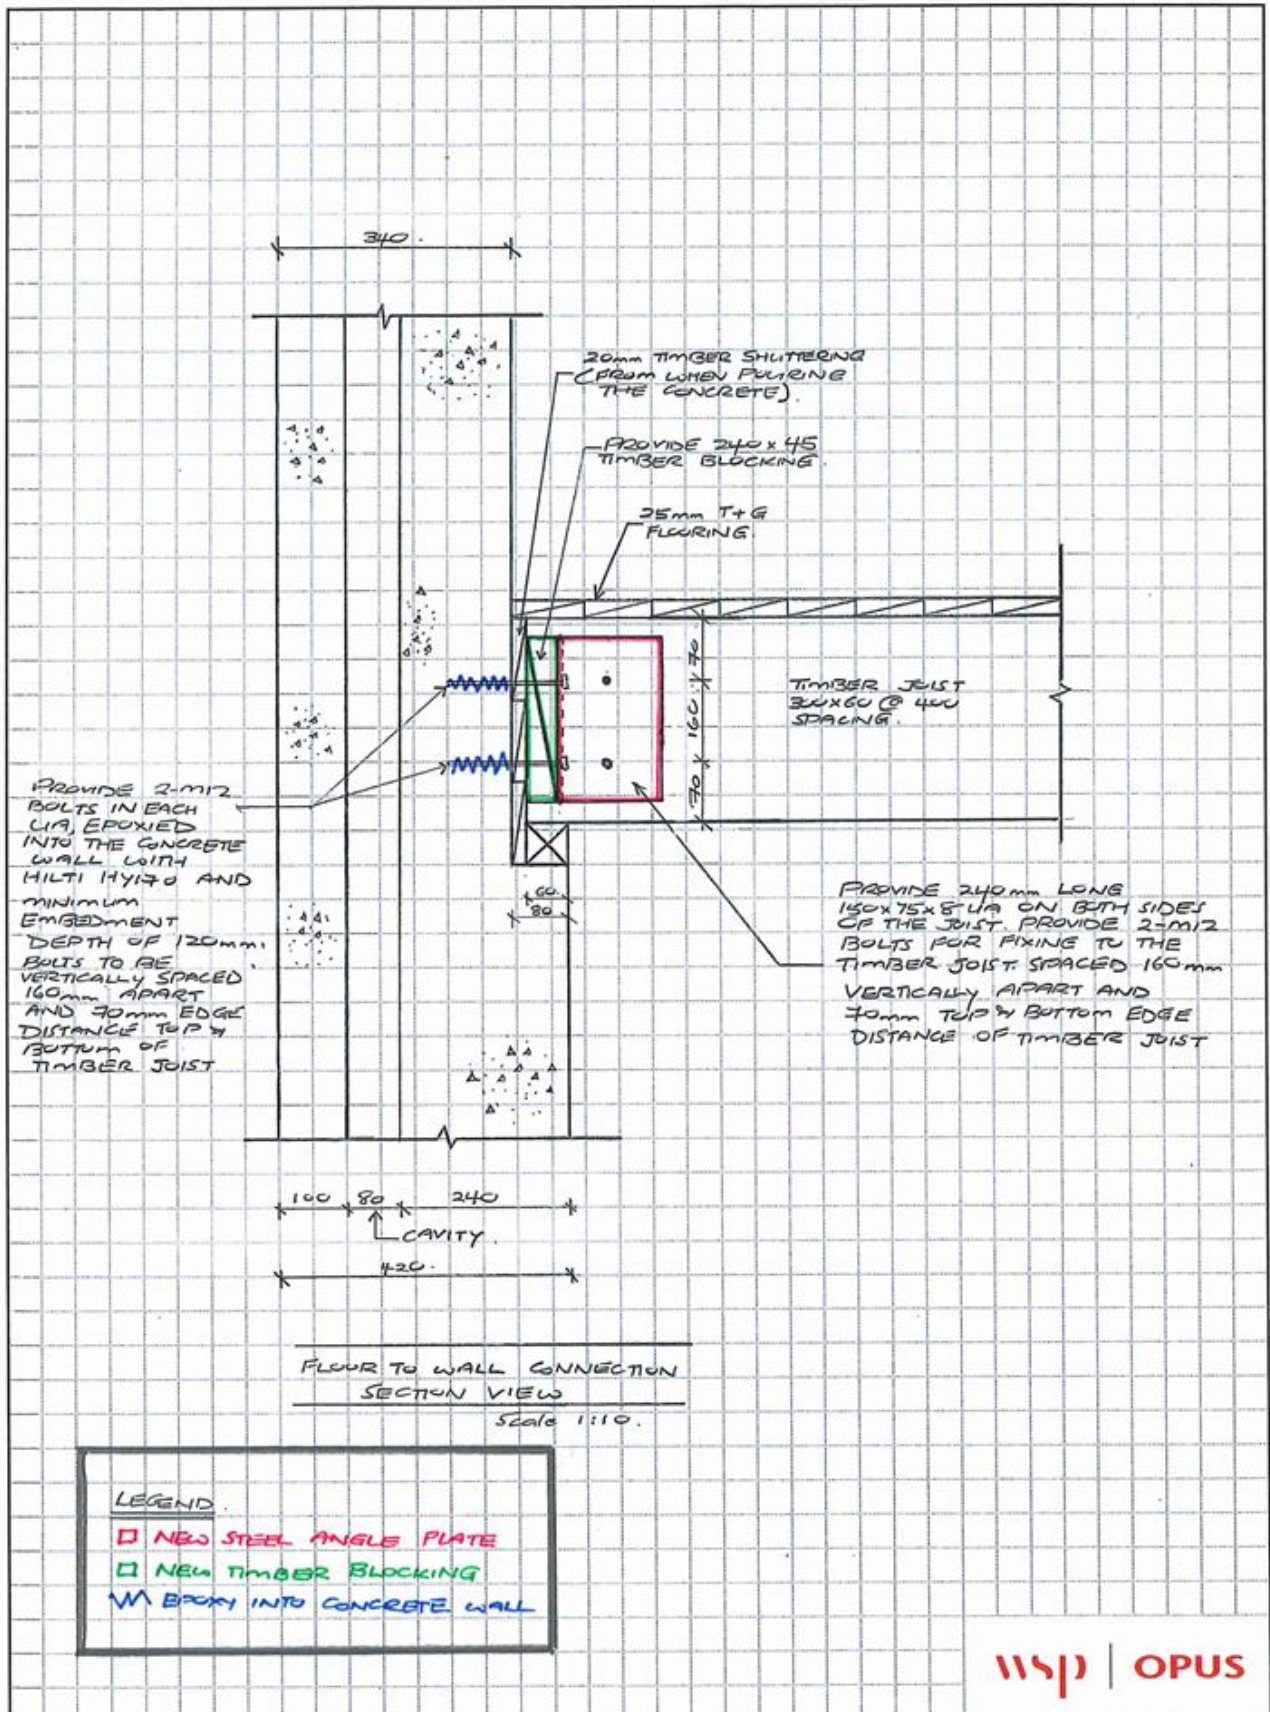 340.
20mm TIMBER SHUTTERING
(FROM WHEN POURING
THE CONCRETE).
PROVIDE 240 x 45
TIMBER BLOCKING.
25mm T+G
FLOORING.
70
160
70
TIMBER JOIST
300x60 @ 400
SPACING.
PROVIDE 2-M12
BOLTS IN EACH
L/A, EPOXIED
INTO THE CONCRETE
WALL WITH
HILTI HY170 AND
MINIMUM
EMBEDMENT
DEPTH OF 120mm.
BOLTS TO BE
VERTICALLY SPACED
160mm APART
AND 70mm EDGE
DISTANCE TOP &
BOTTOM OF
TIMBER JOIST
60
80
PROVIDE 240mm LONG
150x75x8 L/A ON BOTH SIDES
OF THE JOIST. PROVIDE 2-M12
BOLTS FOR FIXING TO THE
TIMBER JOIST. SPACED 160mm
VERTICALLY APART AND
70mm TOP & BOTTOM EDGE
DISTANCE OF TIMBER JOIST
100 80 240
CAVITY.
420.
FLOOR TO WALL CONNECTION
SECTION VIEW
Scale 1:10.
LEGEND.
NEW STEEL ANGLE PLATE
NEW TIMBER BLOCKING
EPOXY INTO CONCRETE WALL
wsp | OPUS